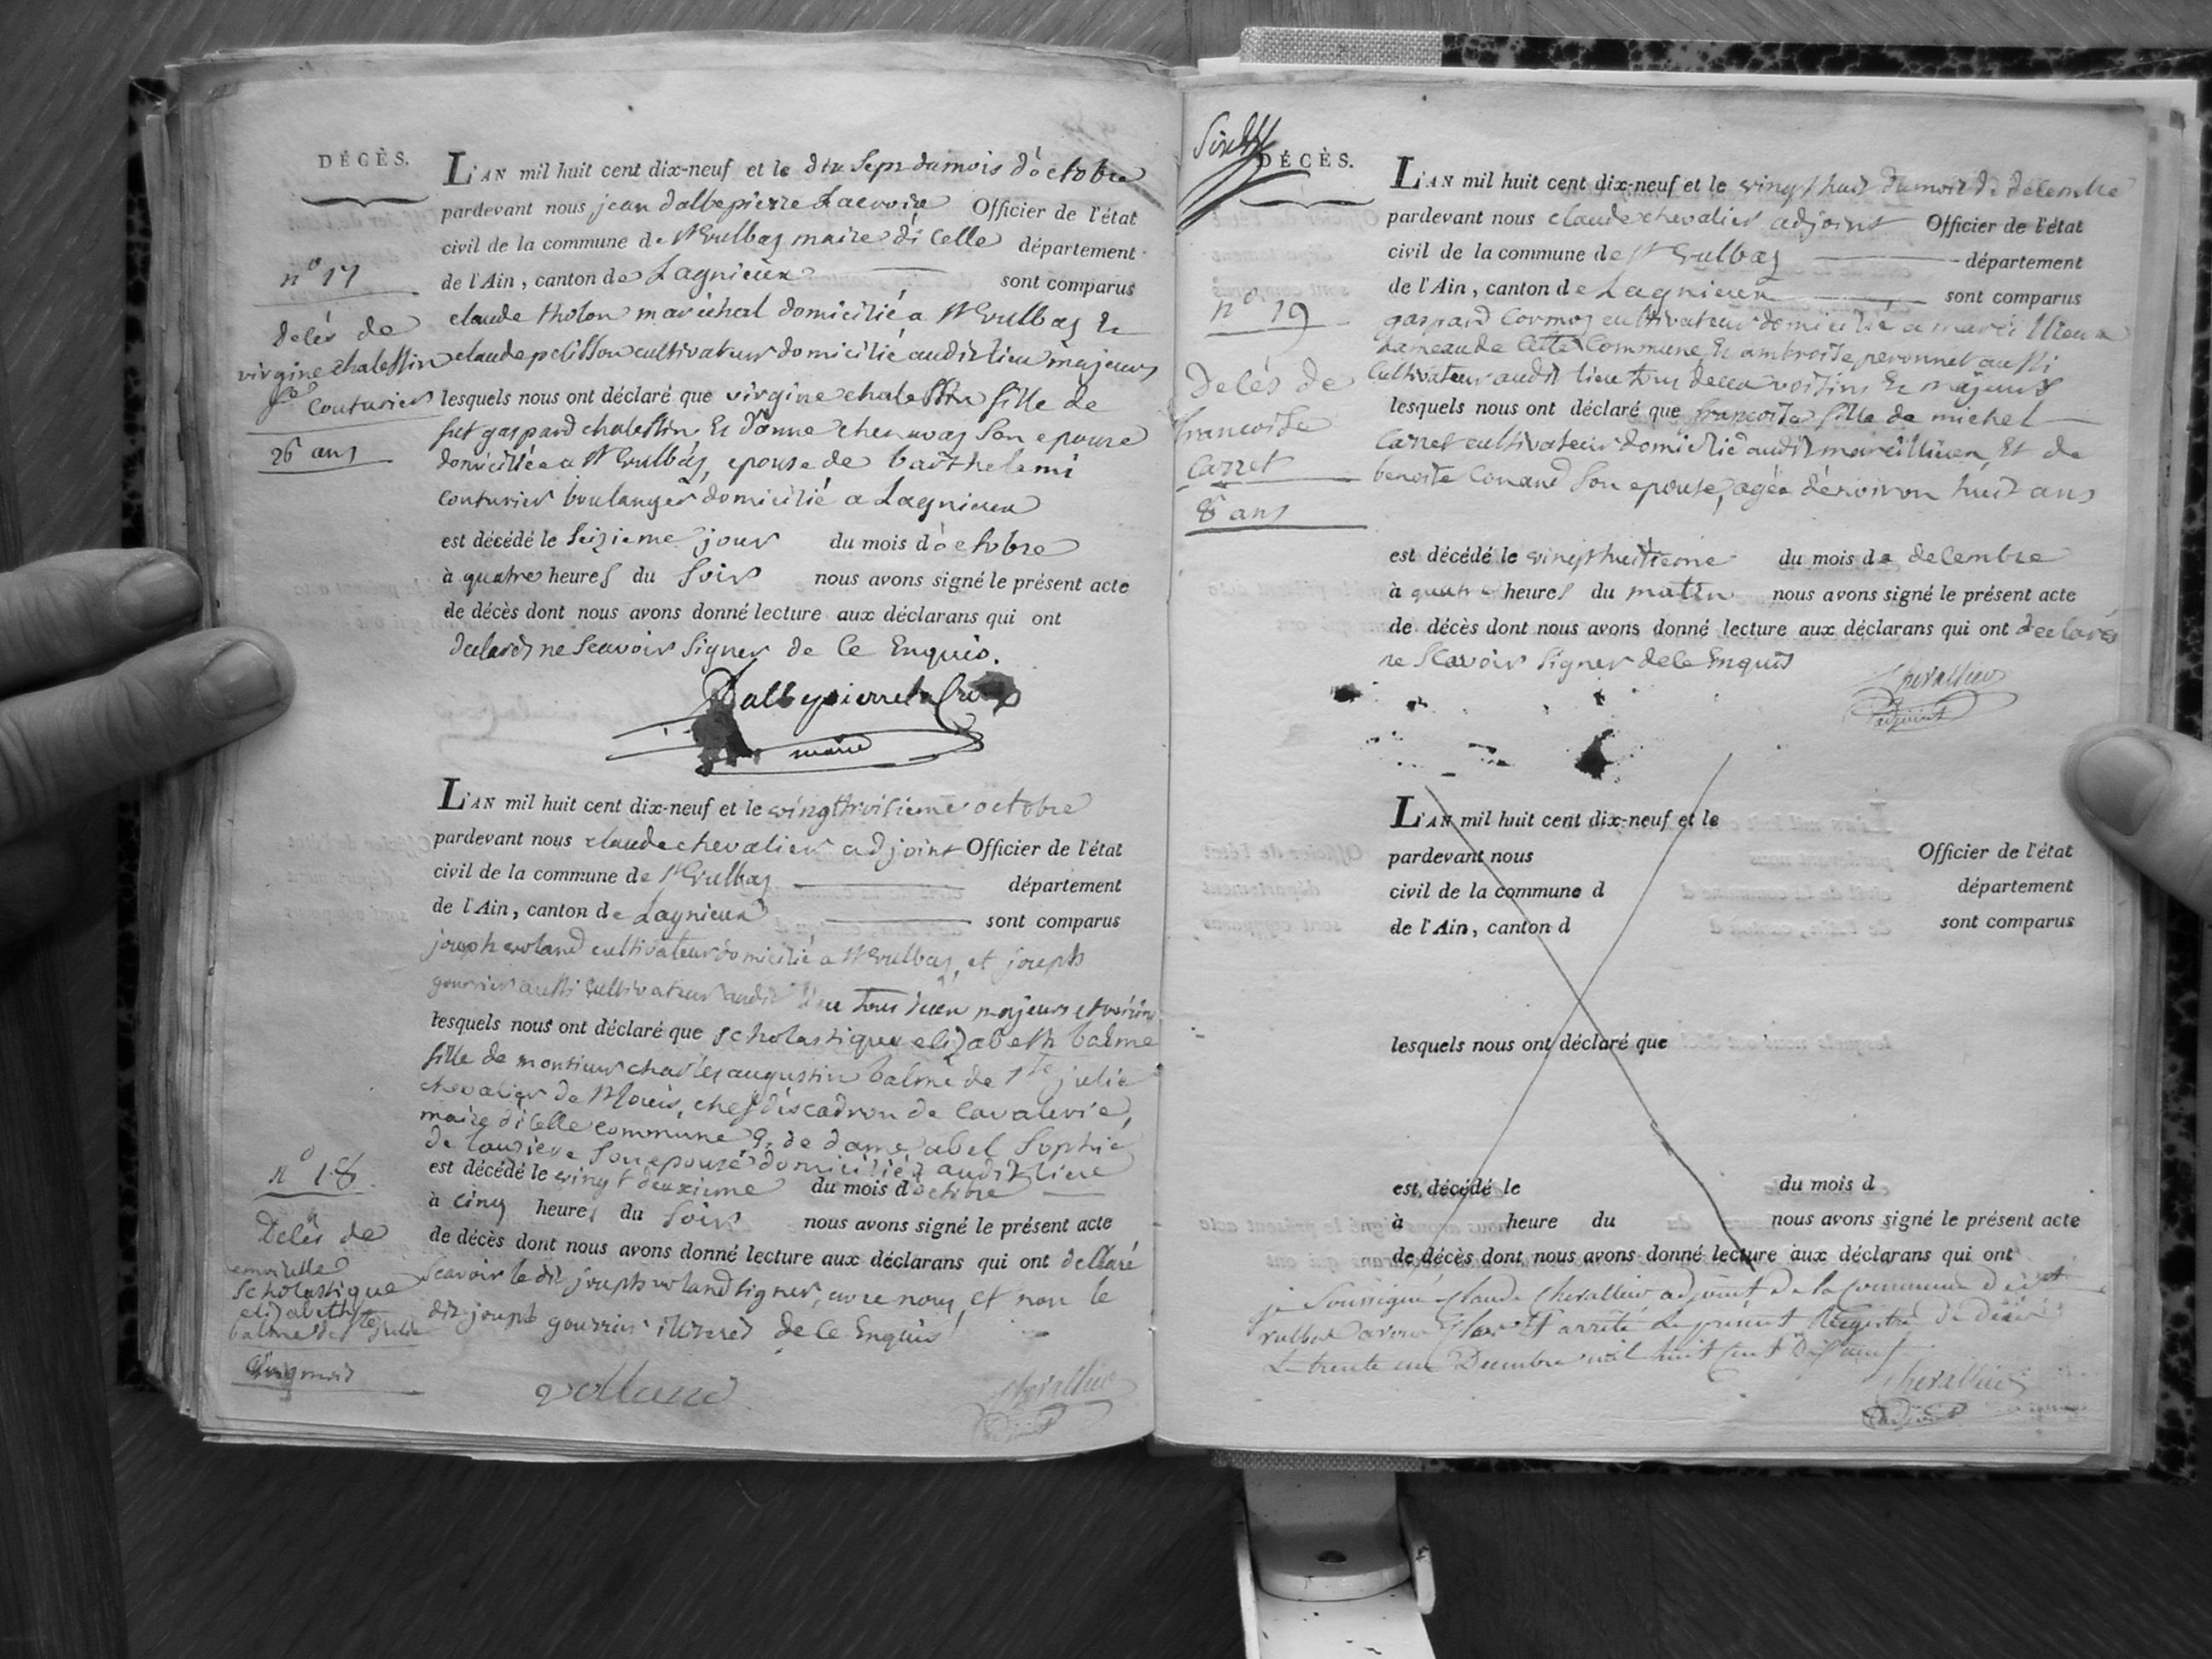 DÉCÈS.
n° 17
Decés de
virgine chalessin
fe Couturier
26 ans
L'AN mil huit cent dix-neuf et le dix Sept du mois d'octobre
pardevant nous jean dalbepierre Lacroix Officier de l'état
civil de la commune de St Vulbas maire di celle département
de l'Ain, canton de Lagnieux sont comparus
claude tholon maréchal domicilié a St Vulbas Et
claude pelisson cultivateur domicilié audit lieu majeurs
lesquels nous ont déclaré que virgine chalessin fille de
fut gaspard chalessin Et d'anne chenavas Son epouse
domiciliée a St Vulbas, epouse de barthelemi
couturier boulanger domicilié a Lagnieux
est décédé le Seizieme jour du mois d'octobre
à quatre heures du Soir nous avons signé le présent acte
de décès dont nous avons donné lecture aux déclarans qui ont
declarés ne Scavoir Signer de Ce Enquis.
Dalbepierre la Croix
maire
n° 18
Decés de
demoiselle
Scholastique
elizabeth
balme de Ste julie
Cinq mois
L'AN mil huit cent dix-neuf et le vingt troisieme octobre
pardevant nous claude chevalier adjoint Officier de l'état
civil de la commune de St Vulbas département
de l'Ain, canton de Lagnieux sont comparus
joseph voland cultivateur domicilié a St Vulbas, et joseph
gourrier aussi cultivateur audit lieu tous deux majeurs et voisins
lesquels nous ont déclaré que scholastique elizabeth balme
fille de monsieur charles augustin balme de Ste julie
chevalier de St Louis, chef d'éscadron de Cavalerie,
maire di celle commune Et de dame abel Sophie
de lauzieve Son epouse domiciliés audit lieu
est décédé le vingt deuxieme du mois d'octobre
à Cinq heures du Soir nous avons signé le présent acte
de décès dont nous avons donné lecture aux déclarans qui ont declaré
Scavoir le dit joseph voland signer, avec nous, et non le
dit joseph gourrier illiteré de Ce Enquis
volland
Chevallier
adjoint
DÉCÈS.
n° 19
Decés de
francoise
Carret
8 ans
L'AN mil huit cent dix-neuf et le vingt huit du mois de decembre
pardevant nous claude chevalier adjoint Officier de l'état
civil de la commune de St Vulbas département
de l'Ain, canton de Lagnieux sont comparus
gaspard Cormoz cultivateur domicilié a marcillieux
hameau de Cette Commune, Et ambroise peronnet aussi
Cultivateur audit lieu tous deux voisins Et majeurs
lesquels nous ont déclaré que francoise fille de michel
Carret cultivateur domicilié audit marcillieux, Et de
benoite Conand Son epouse, agée d'énviron huit ans
est décédé le vingt huitieme du mois de decembre
à quatre heures du matin nous avons signé le présent acte
de décès dont nous avons donné lecture aux déclarans qui ont declarés
ne Scavoir Signer de Ce Enquis
Chevallier
adjoint
L'AN mil huit cent dix-neuf et le
pardevant nous Officier de l'état
civil de la commune d département
de l'Ain, canton d sont comparus
lesquels nous ont déclaré que
est décédé le du mois d
à heure du nous avons signé le présent acte
de décès dont nous avons donné lecture aux déclarans qui ont
je Soussigné Claude Chevallier adjoint de la Commune de St
vulbas avons Clos Et arrêté Le présent Registre de Décès
Le trente un Decembre mil huit Cent Dix neuf
Chevallier
adjoint